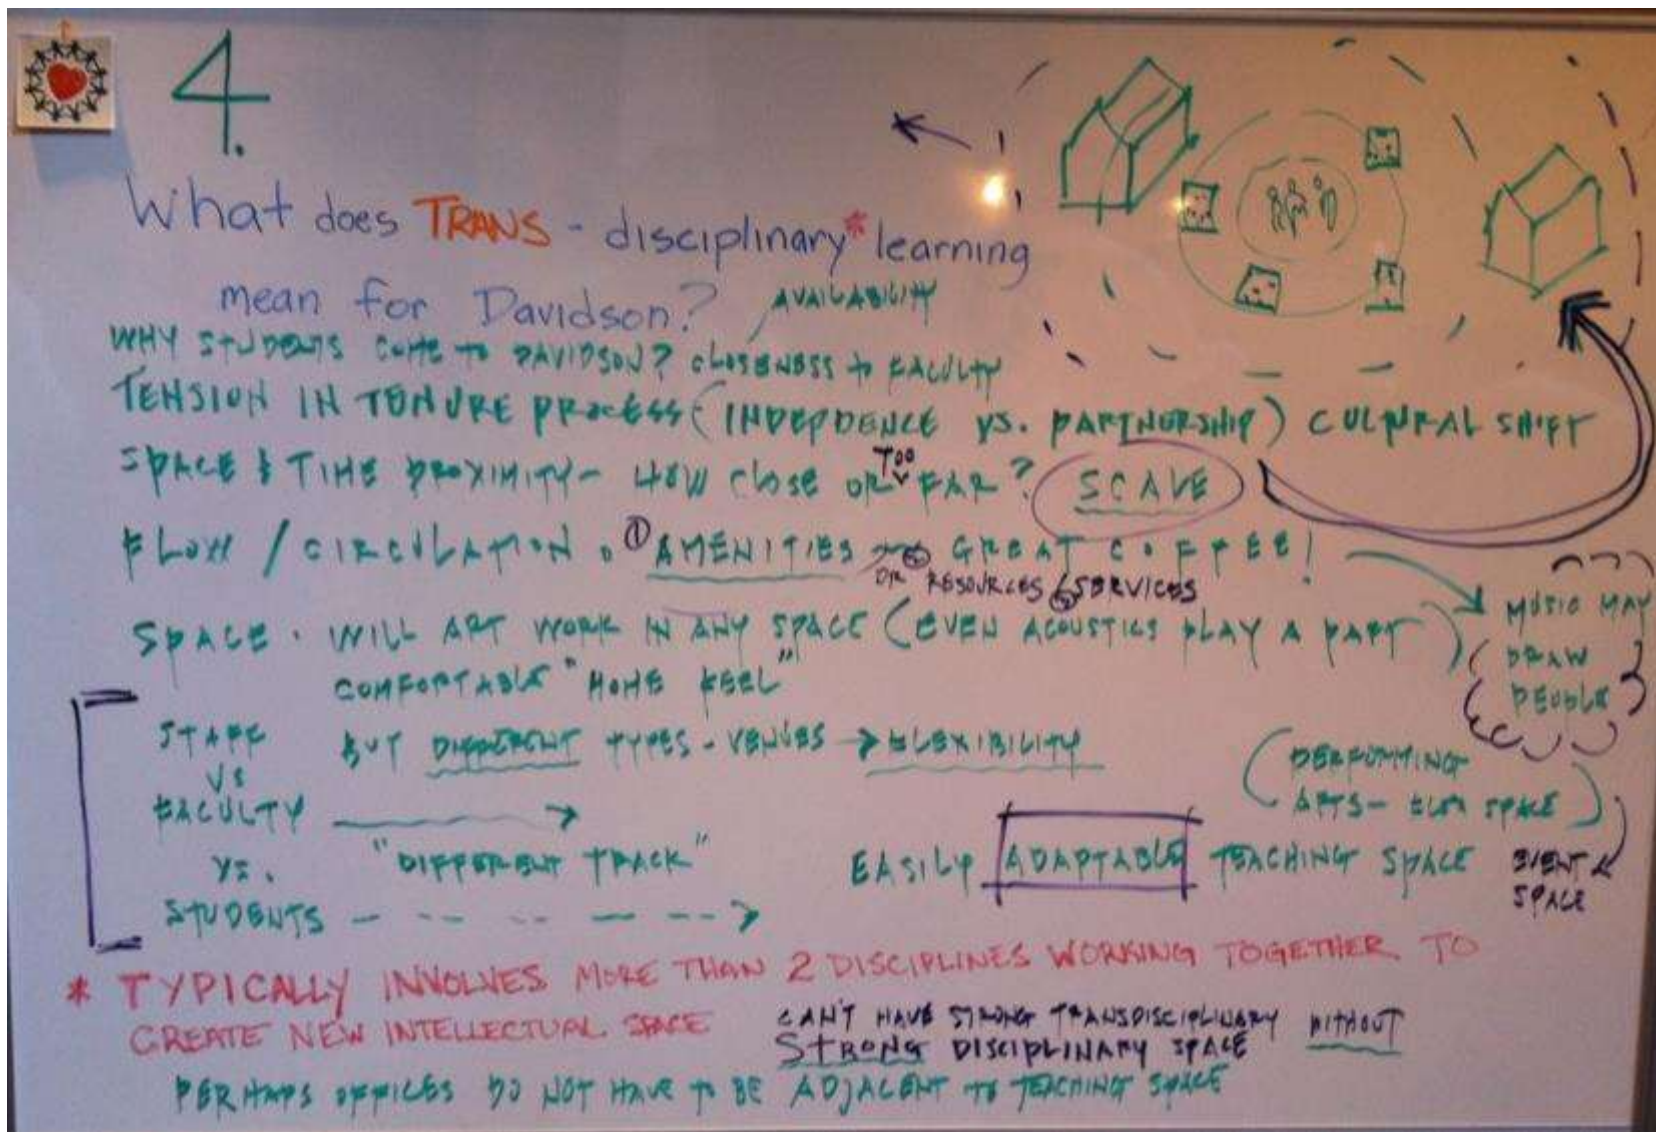 4.
What does TRANS - disciplinary* learning
mean for Davidson?
AVAILABILITY
WHY STUDENTS COME TO DAVIDSON? CLOSENESS TO FACULTY
TENSION IN TENURE PROCESS (INDEPDENCE VS. PARTNERSHIP) CULTURAL SHIFT
SPACE & TIME PROXIMITY - HOW CLOSE OR TOO FAR? SCALE
FLOW / CIRCULATION. ① AMENITIES ② GREAT COFFEE!
OR RESOURCES & SERVICES
SPACE. WILL ART WORK IN ANY SPACE (EVEN ACOUSTICS PLAY A PART)
MUSIC MAY
DRAW
PEOPLE
COMFORTABLE "HOME FEEL"
STAFF
VS
FACULTY
VS.
STUDENTS
BUT DIFFERENT TYPES - VENUES → FLEXIBILITY
"DIFFERENT TRACK"
(PERFORMING
ARTS - FLEX SPACE)
EASILY ADAPTABLE TEACHING SPACE
EVENT
SPACE
* TYPICALLY INVOLVES MORE THAN 2 DISCIPLINES WORKING TOGETHER TO
CREATE NEW INTELLECTUAL SPACE
CAN'T HAVE STRONG TRANSDISCIPLINARY WITHOUT
STRONG DISCIPLINARY SPACE
PERHAPS OFFICES DO NOT HAVE TO BE ADJACENT TO TEACHING SPACE